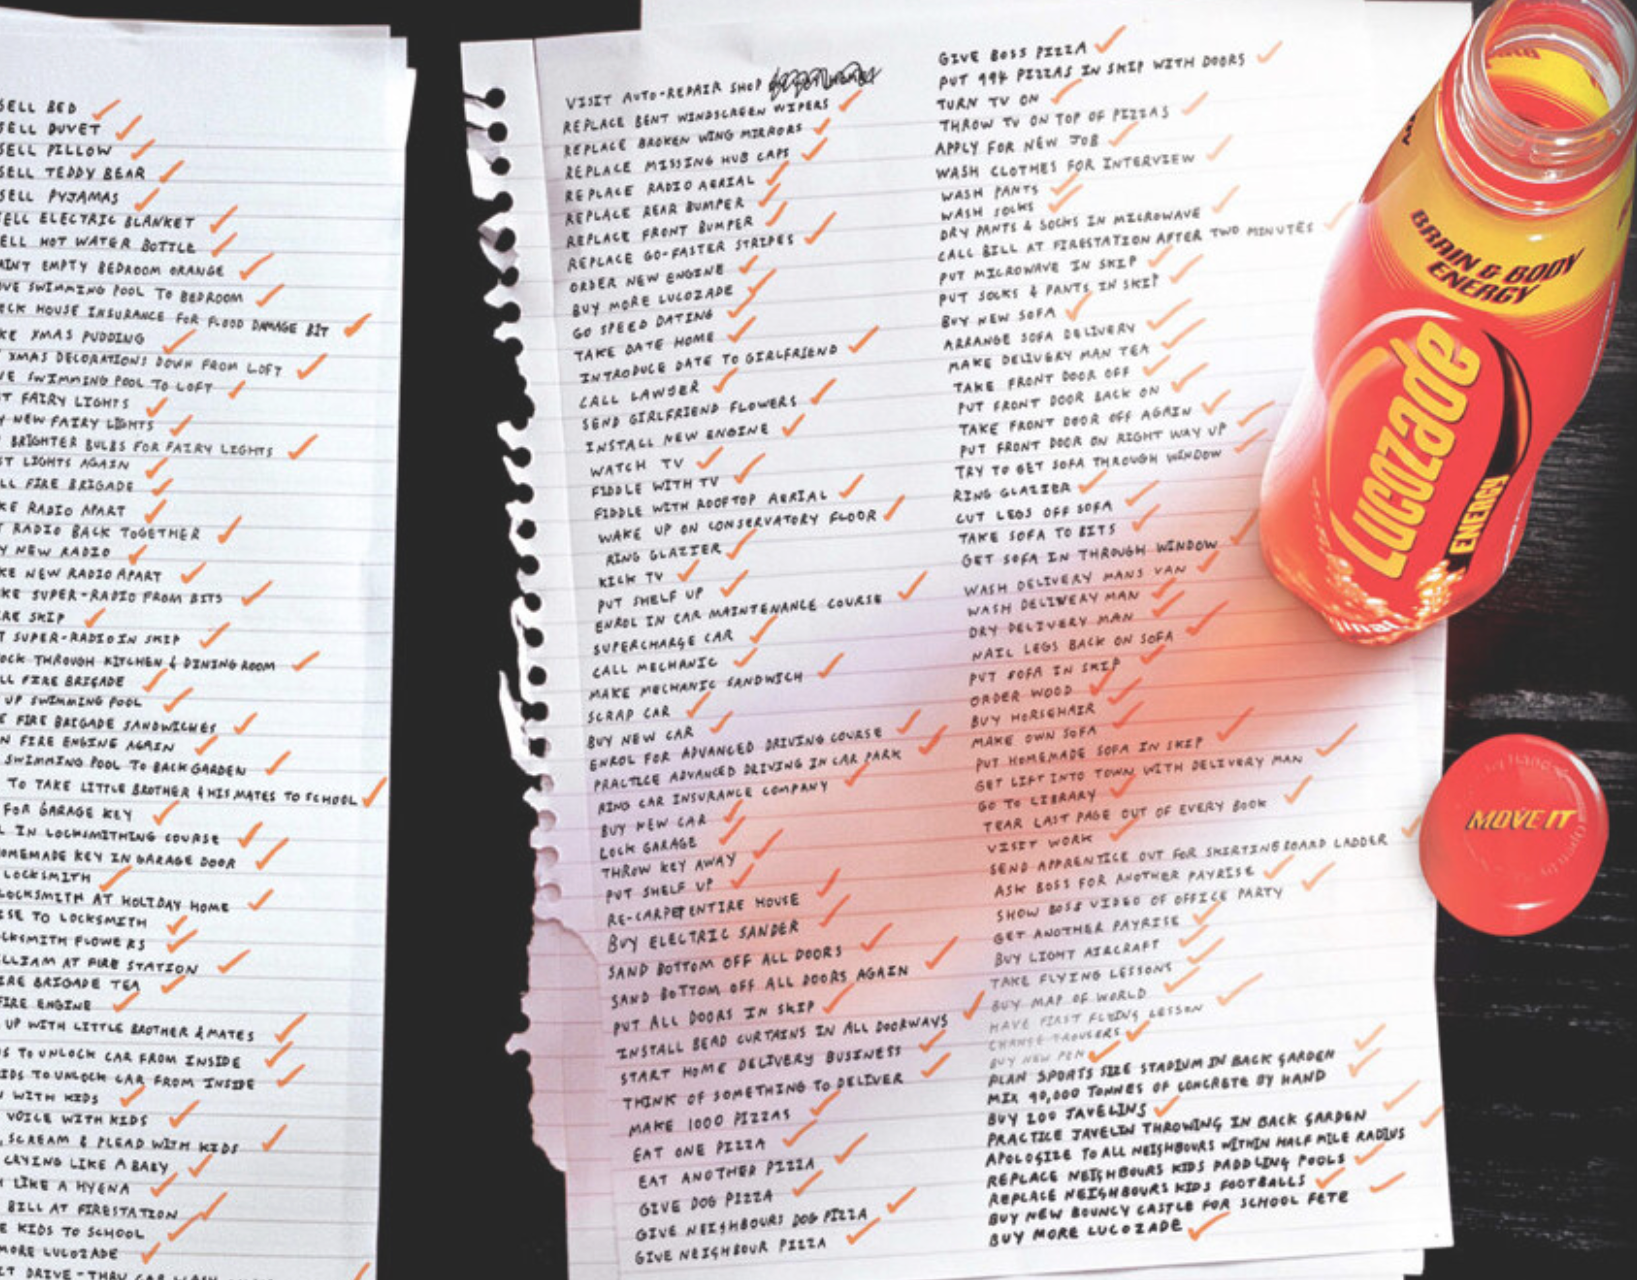 SELL BED
SELL DUVET
SELL PILLOW
SELL TEDDY BEAR
SELL PYJAMAS
ELL ELECTRIC BLANKET
ELL HOT WATER BOTTLE
AINT EMPTY BEDROOM ORANGE
OVE SWIMMING POOL TO BEDROOM
ECK HOUSE INSURANCE FOR FLOOD DAMAGE BIT
KE XMAS PUDDING
XMAS DECORATIONS DOWN FROM LOFT
VE SWIMMING POOL TO LOFT
T FAIRY LIGHTS
Y NEW FAIRY LIGHTS
BRIGHTER BULBS FOR FAIRY LIGHTS
ST LIGHTS AGAIN
LL FIRE BRIGADE
KE RADIO APART
T RADIO BACK TOGETHER
Y NEW RADIO
KE NEW RADIO APART
KE SUPER-RADIO FROM BITS
RE SKIP
T SUPER-RADIO IN SKIP
OCK THROUGH KITCHEN & DINING ROOM
LL FIRE BRIGADE
UP SWIMMING POOL
E FIRE BRIGADE SANDWICHES
N FIRE ENGINE AGAIN
SWIMMING POOL TO BACK GARDEN
TO TAKE LITTLE BROTHER & HIS MATES TO SCHOOL
FOR GARAGE KEY
L IN LOCKSMITHING COURSE
OMEMADE KEY IN GARAGE DOOR
LOCKSMITH
LOCKSMITH AT HOLIDAY HOME
ISE TO LOCKSMITH
CKSMITH FLOWERS
ILLIAM AT FIRE STATION
IRE BRIGADE TEA
FIRE ENGINE
UP WITH LITTLE BROTHER & MATES
S TO UNLOCK CAR FROM INSIDE
IDS TO UNLOCK CAR FROM INSIDE
WITH KIDS
VOICE WITH KIDS
, SCREAM & PLEAD WITH KIDS
CRYING LIKE A BABY
LIKE A HYENA
BILL AT FIRESTATION
E KIDS TO SCHOOL
MORE LUCOZADE
IT DRIVE-THRU CAR WASH
VISIT AUTO-REPAIR SHOP
REPLACE BENT WINDSCREEN WIPERS
REPLACE BROKEN WING MIRRORS
REPLACE MISSING HUB CAPS
REPLACE RADIO AERIAL
REPLACE REAR BUMPER
REPLACE FRONT BUMPER
REPLACE GO-FASTER STRIPES
ORDER NEW ENGINE
BUY MORE LUCOZADE
GO SPEED DATING
TAKE DATE HOME
INTRODUCE DATE TO GIRLFRIEND
CALL LAWYER
SEND GIRLFRIEND FLOWERS
INSTALL NEW ENGINE
WATCH TV
FIDDLE WITH TV
FIDDLE WITH ROOFTOP AERIAL
WAKE UP ON CONSERVATORY FLOOR
RING GLAZIER
KICK TV
PUT SHELF UP
ENROL IN CAR MAINTENANCE COURSE
SUPERCHARGE CAR
CALL MECHANIC
MAKE MECHANIC SANDWICH
SCRAP CAR
BUY NEW CAR
ENROL FOR ADVANCED DRIVING COURSE
PRACTICE ADVANCED DRIVING IN CAR PARK
RING CAR INSURANCE COMPANY
BUY NEW CAR
LOCK GARAGE
THROW KEY AWAY
PUT SHELF UP
RE-CARPET ENTIRE HOUSE
BUY ELECTRIC SANDER
SAND BOTTOM OFF ALL DOORS
SAND BOTTOM OFF ALL DOORS AGAIN
PUT ALL DOORS IN SKIP
INSTALL BEAD CURTAINS IN ALL DOORWAYS
START HOME DELIVERY BUSINESS
THINK OF SOMETHING TO DELIVER
MAKE 1000 PIZZAS
EAT ONE PIZZA
EAT ANOTHER PIZZA
GIVE DOG PIZZA
GIVE NEIGHBOURS DOG PIZZA
GIVE NEIGHBOUR PIZZA
GIVE BOSS PIZZA
PUT 994 PIZZAS IN SKIP WITH DOORS
TURN TV ON
THROW TV ON TOP OF PIZZAS
APPLY FOR NEW JOB
WASH CLOTHES FOR INTERVIEW
WASH PANTS
WASH SOCKS
DRY PANTS & SOCKS IN MICROWAVE
CALL BILL AT FIRESTATION AFTER TWO MINUTES
PUT MICROWAVE IN SKIP
PUT SOCKS & PANTS IN SKIP
BUY NEW SOFA
ARRANGE SOFA DELIVERY
MAKE DELIVERY MAN TEA
TAKE FRONT DOOR OFF
PUT FRONT DOOR BACK ON
TAKE FRONT DOOR OFF AGAIN
PUT FRONT DOOR ON RIGHT WAY UP
TRY TO GET SOFA THROUGH WINDOW
RING GLAZIER
CUT LEGS OFF SOFA
TAKE SOFA TO BITS
GET SOFA IN THROUGH WINDOW
WASH DELIVERY MANS VAN
WASH DELIVERY MAN
DRY DELIVERY MAN
NAIL LEGS BACK ON SOFA
PUT SOFA IN SKIP
ORDER WOOD
BUY HORSEHAIR
MAKE OWN SOFA
PUT HOMEMADE SOFA IN SKIP
GET LIFT INTO TOWN WITH DELIVERY MAN
GO TO LIBRARY
TEAR LAST PAGE OUT OF EVERY BOOK
VISIT WORK
SEND APPRENTICE OUT FOR SKIRTING BOARD LADDER
ASK BOSS FOR ANOTHER PAYRISE
SHOW BOSS VIDEO OF OFFICE PARTY
GET ANOTHER PAYRISE
BUY LIGHT AIRCRAFT
TAKE FLYING LESSONS
BUY MAP OF WORLD
HAVE FIRST FLYING LESSON
CHANGE TROUSERS
BUY NEW PEN
PLAN SPORTS SIZE STADIUM IN BACK GARDEN
MIX 90,000 TONNES OF CONCRETE BY HAND
BUY 200 JAVELINS
PRACTICE JAVELIN THROWING IN BACK GARDEN
APOLOGIZE TO ALL NEIGHBOURS WITHIN HALF MILE RADIUS
REPLACE NEIGHBOURS KIDS PADDLING POOLS
REPLACE NEIGHBOURS KIDS FOOTBALLS
BUY NEW BOUNCY CASTLE FOR SCHOOL FETE
BUY MORE LUCOZADE
BRAIN & BODY
ENERGY
Lucozade
ENERGY
MOVE IT